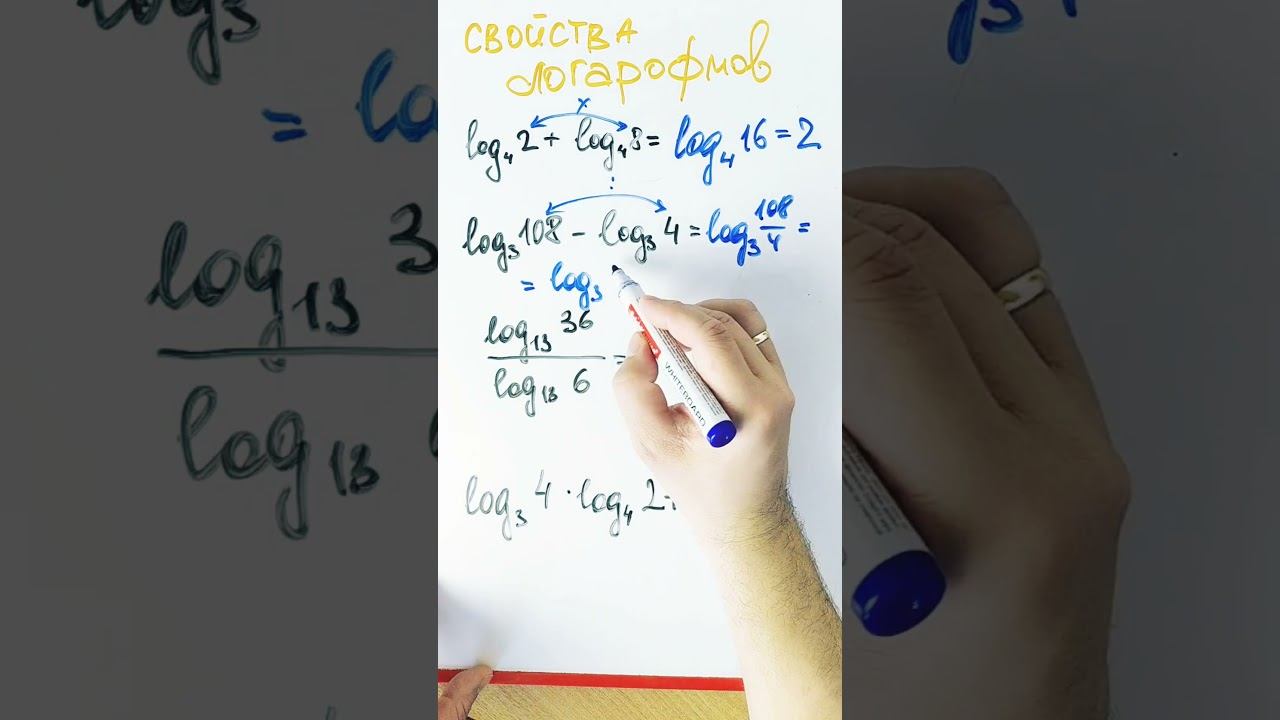 СВОЙСТВА
логарофмов
x
log₄2 + log₄8 = log₄16 = 2
:
log₃108 - log₃4 = log₃ 108/4 =
= log₃
log₁₃ 36
log₁₃ 6
=
log₃4 · log₄2
WHITEBOARD